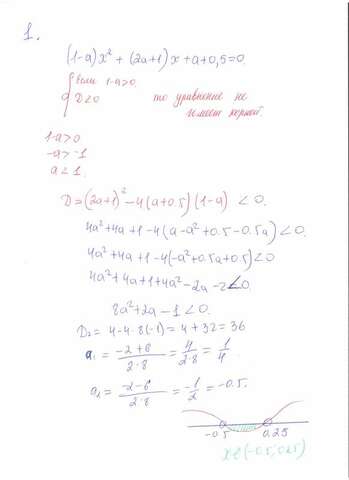 1.
(1-a)x² + (2a+1)x + a+0,5=0.
если 1-a>0
D<0 то уравнение не
имеет корней.
1-a>0
-a>-1
a<1.
D=(2a+1)²-4(a+0.5)(1-a) <0.
4a²+4a+1-4(a-a²+0.5-0.5a)<0.
4a²+4a+1-4(-a²+0.5a+0.5)<0
4a²+4a+1+4a²-2a-2<0
8a²+2a-1<0.
D₂=4-4·8(-1)=4+32=36
a₁ = -2+6/2·8 = 4/2·8 = 1/4.
a₂ = -2-6/2·8 = -1/2 = -0.5.
-0.5 0.25
x∈(-0.5;0.25)